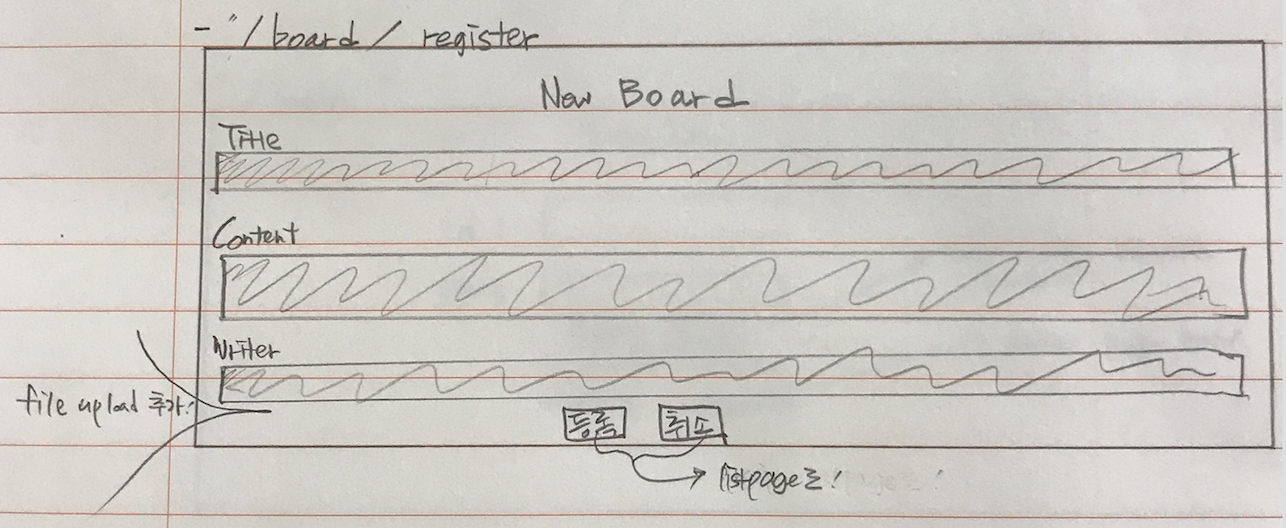 - "/board/register
New Board
Title
Content
Writer
file upload 추가!
등록 취소
list page로!